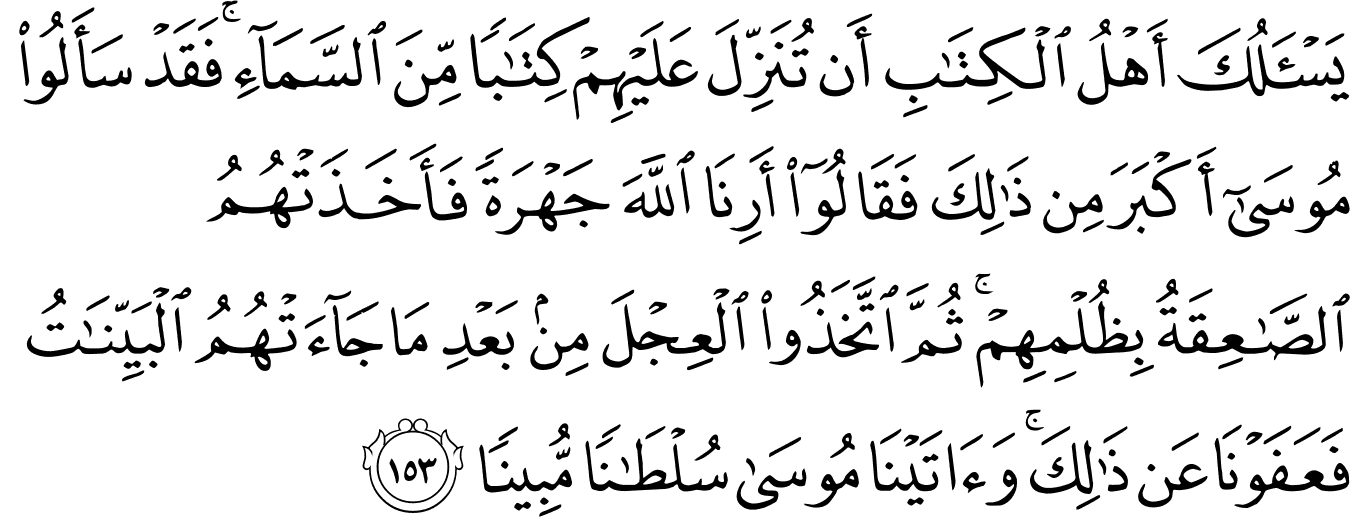 يَسْـَٔلُكَ أَهْلُ ٱلْكِتَـٰبِ أَن تُنَزِّلَ عَلَيْهِمْ كِتَـٰبًا مِّنَ ٱلسَّمَآءِ ۚ فَقَدْ سَأَلُوا۟
مُوسَىٰٓ أَكْبَرَ مِن ذَٰلِكَ فَقَالُوٓا۟ أَرِنَا ٱللَّهَ جَهْرَةً فَأَخَذَتْهُمُ
ٱلصَّـٰعِقَةُ بِظُلْمِهِمْ ۚ ثُمَّ ٱتَّخَذُوا۟ ٱلْعِجْلَ مِنۢ بَعْدِ مَا جَآءَتْهُمُ ٱلْبَيِّنَـٰتُ
فَعَفَوْنَا عَن ذَٰلِكَ ۚ وَءَاتَيْنَا مُوسَىٰ سُلْطَـٰنًا مُّبِينًا ١٥٣